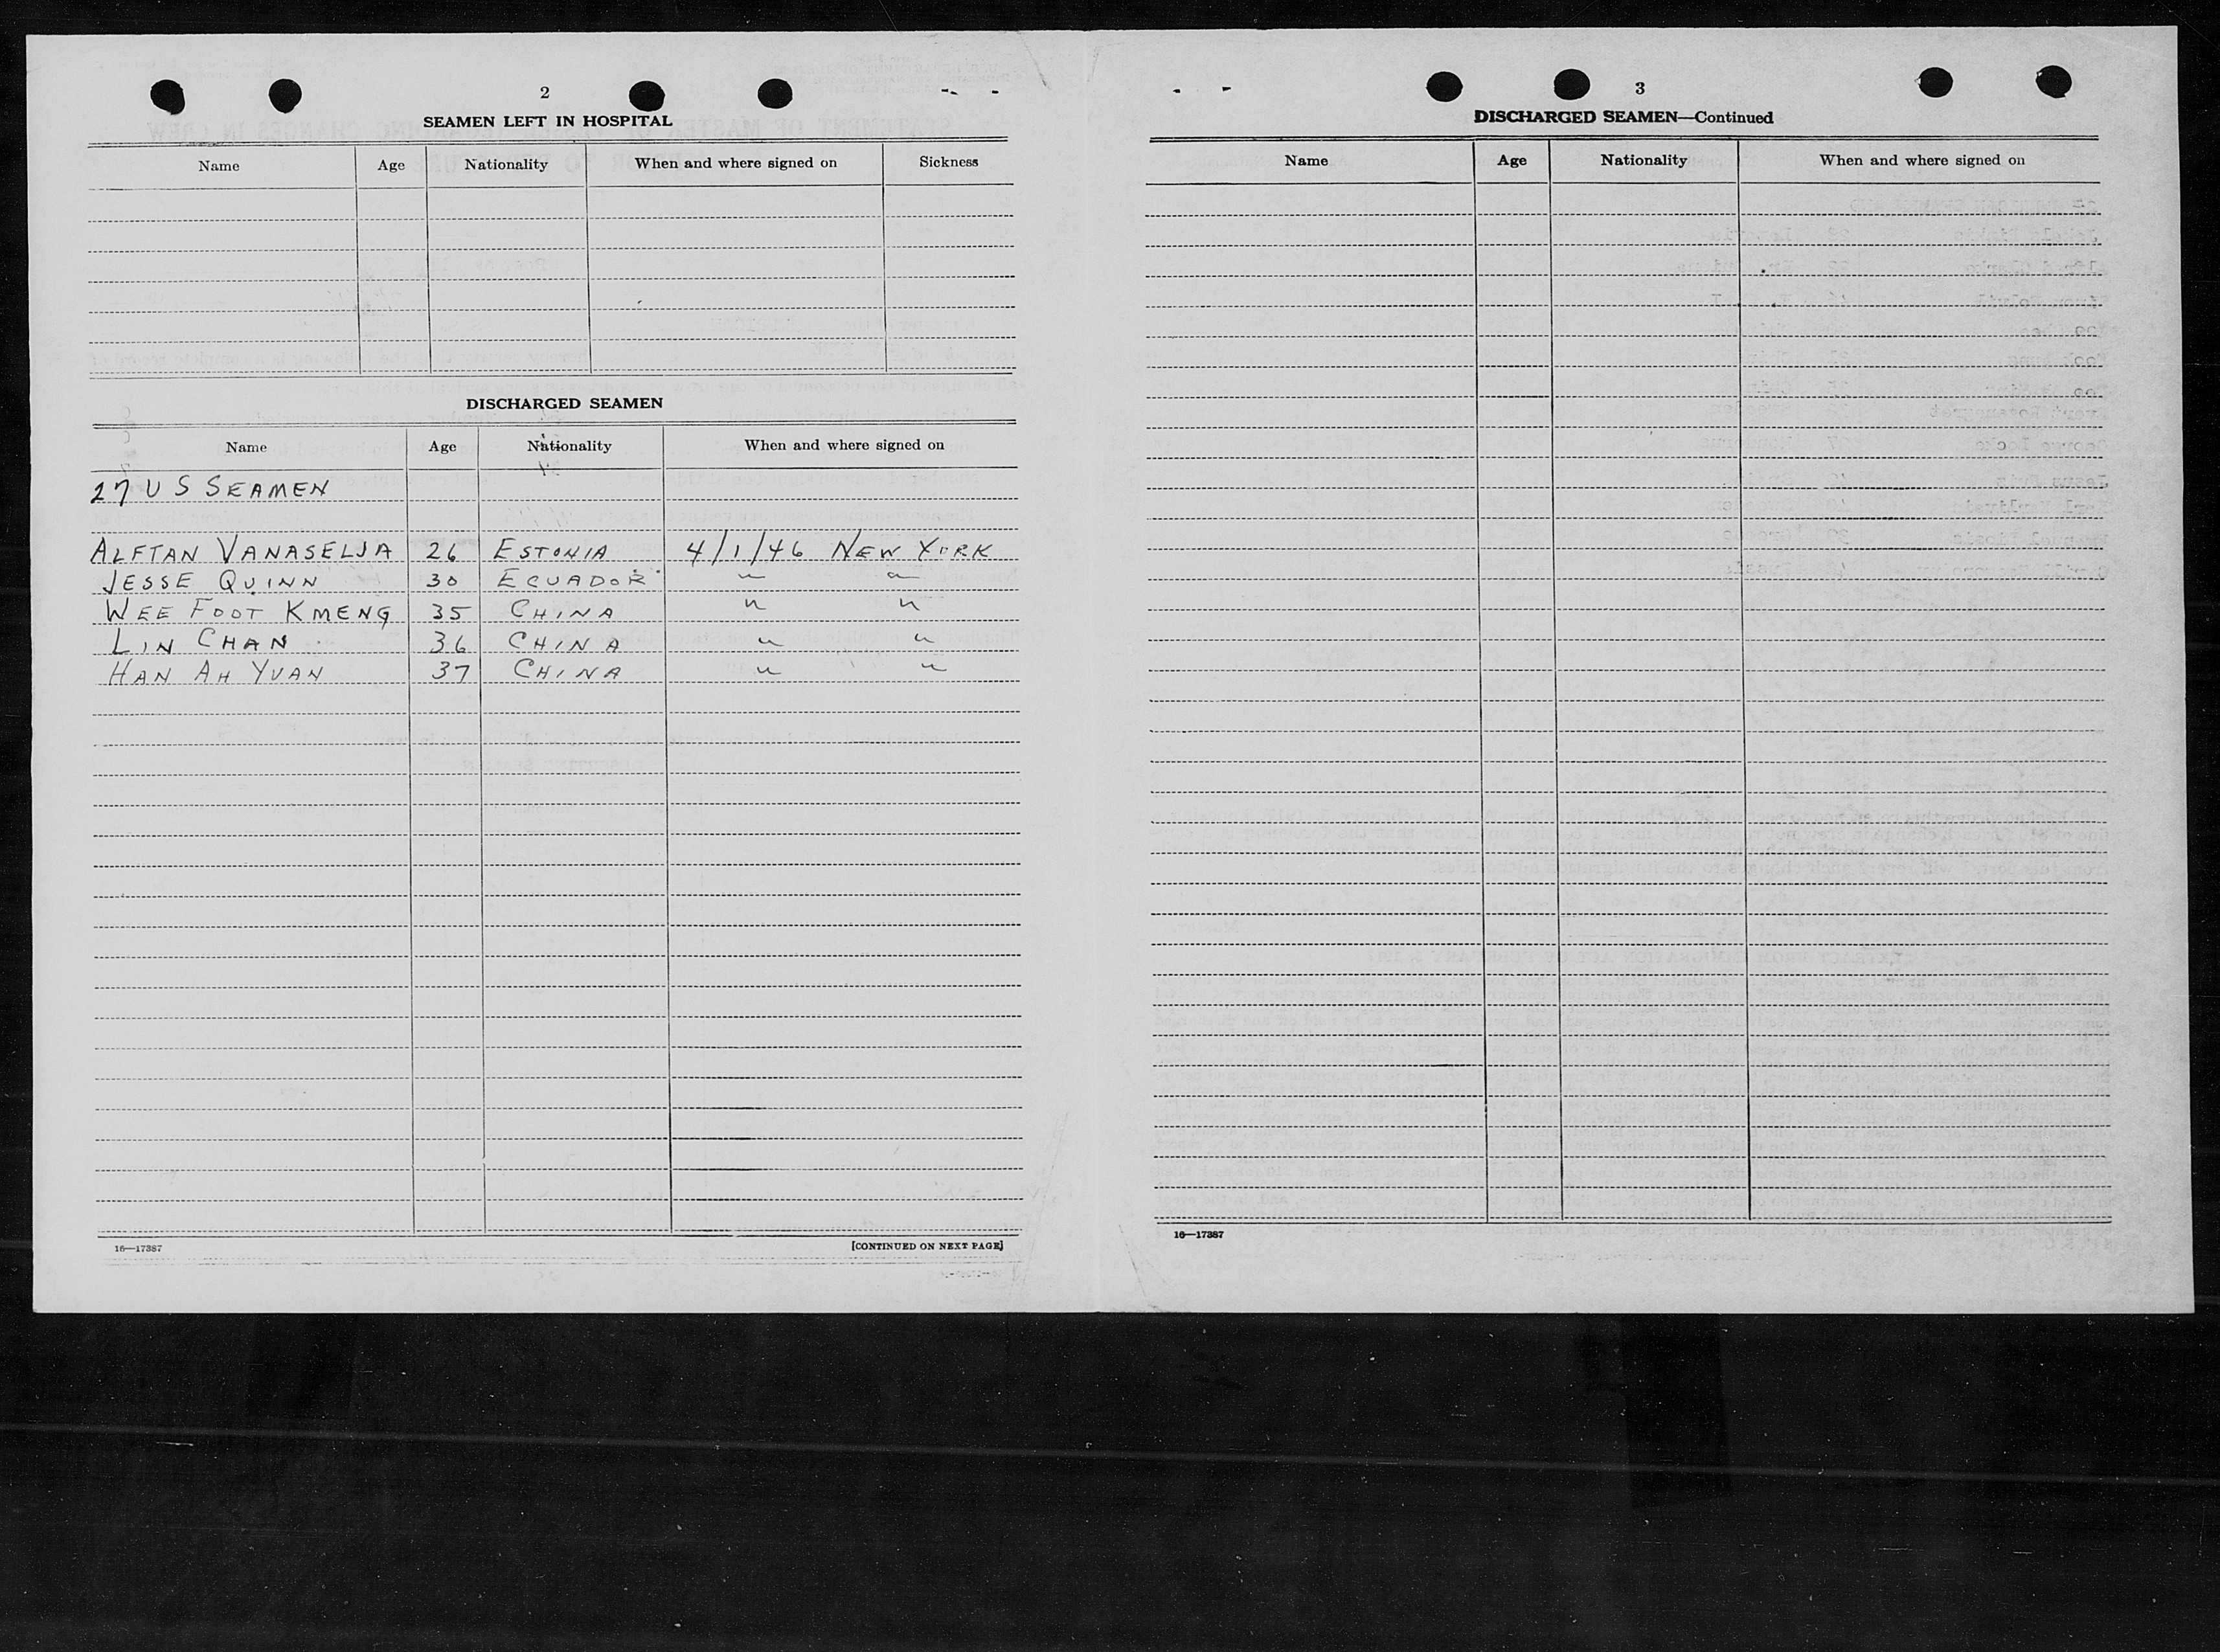 2
SEAMEN LEFT IN HOSPITAL
Name Age Nationality When and where signed on Sickness
DISCHARGED SEAMEN
Name Age Nationality When and where signed on
27 U S SEAMEN
ALFTAN VANASELJA 26 ESTONIA 4/1/46 NEW YORK
JESSE QUINN 30 ECUADOR " "
WEE FOOT KMENG 35 CHINA " "
LIN CHAN 36 CHINA " "
HAN AH YUAN 37 CHINA " "
16—17387 [CONTINUED ON NEXT PAGE]
3
DISCHARGED SEAMEN—Continued
Name Age Nationality When and where signed on
16—17387